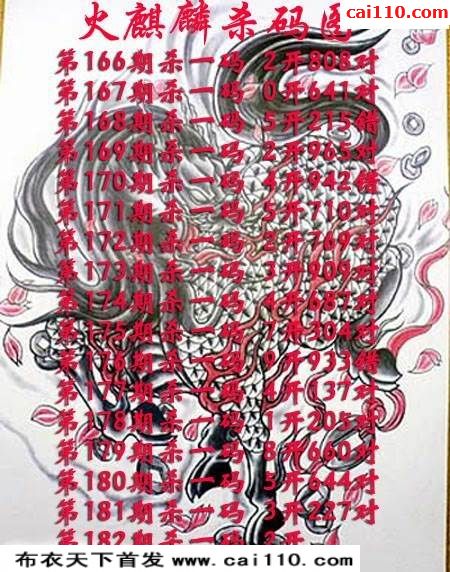 cai110.com
火麒麟杀码图
第166期杀一码 2开808对
第167期杀一码 0开641对
第168期杀一码 5开215错
第169期杀一码 2开965对
第170期杀一码 4开942错
第171期杀一码 5开710对
第172期杀一码 2开769对
第173期杀一码 3开909对
第174期杀一码 4开687对
第175期杀一码 7开304对
第176期杀一码 9开933错
第177期杀一码 4开137对
第178期杀一码 1开205对
第179期杀一码 8开660对
第180期杀一码 5开644对
第181期杀一码 3开227对
第182期杀一码 2开
布衣天下首发 www.cai110.com